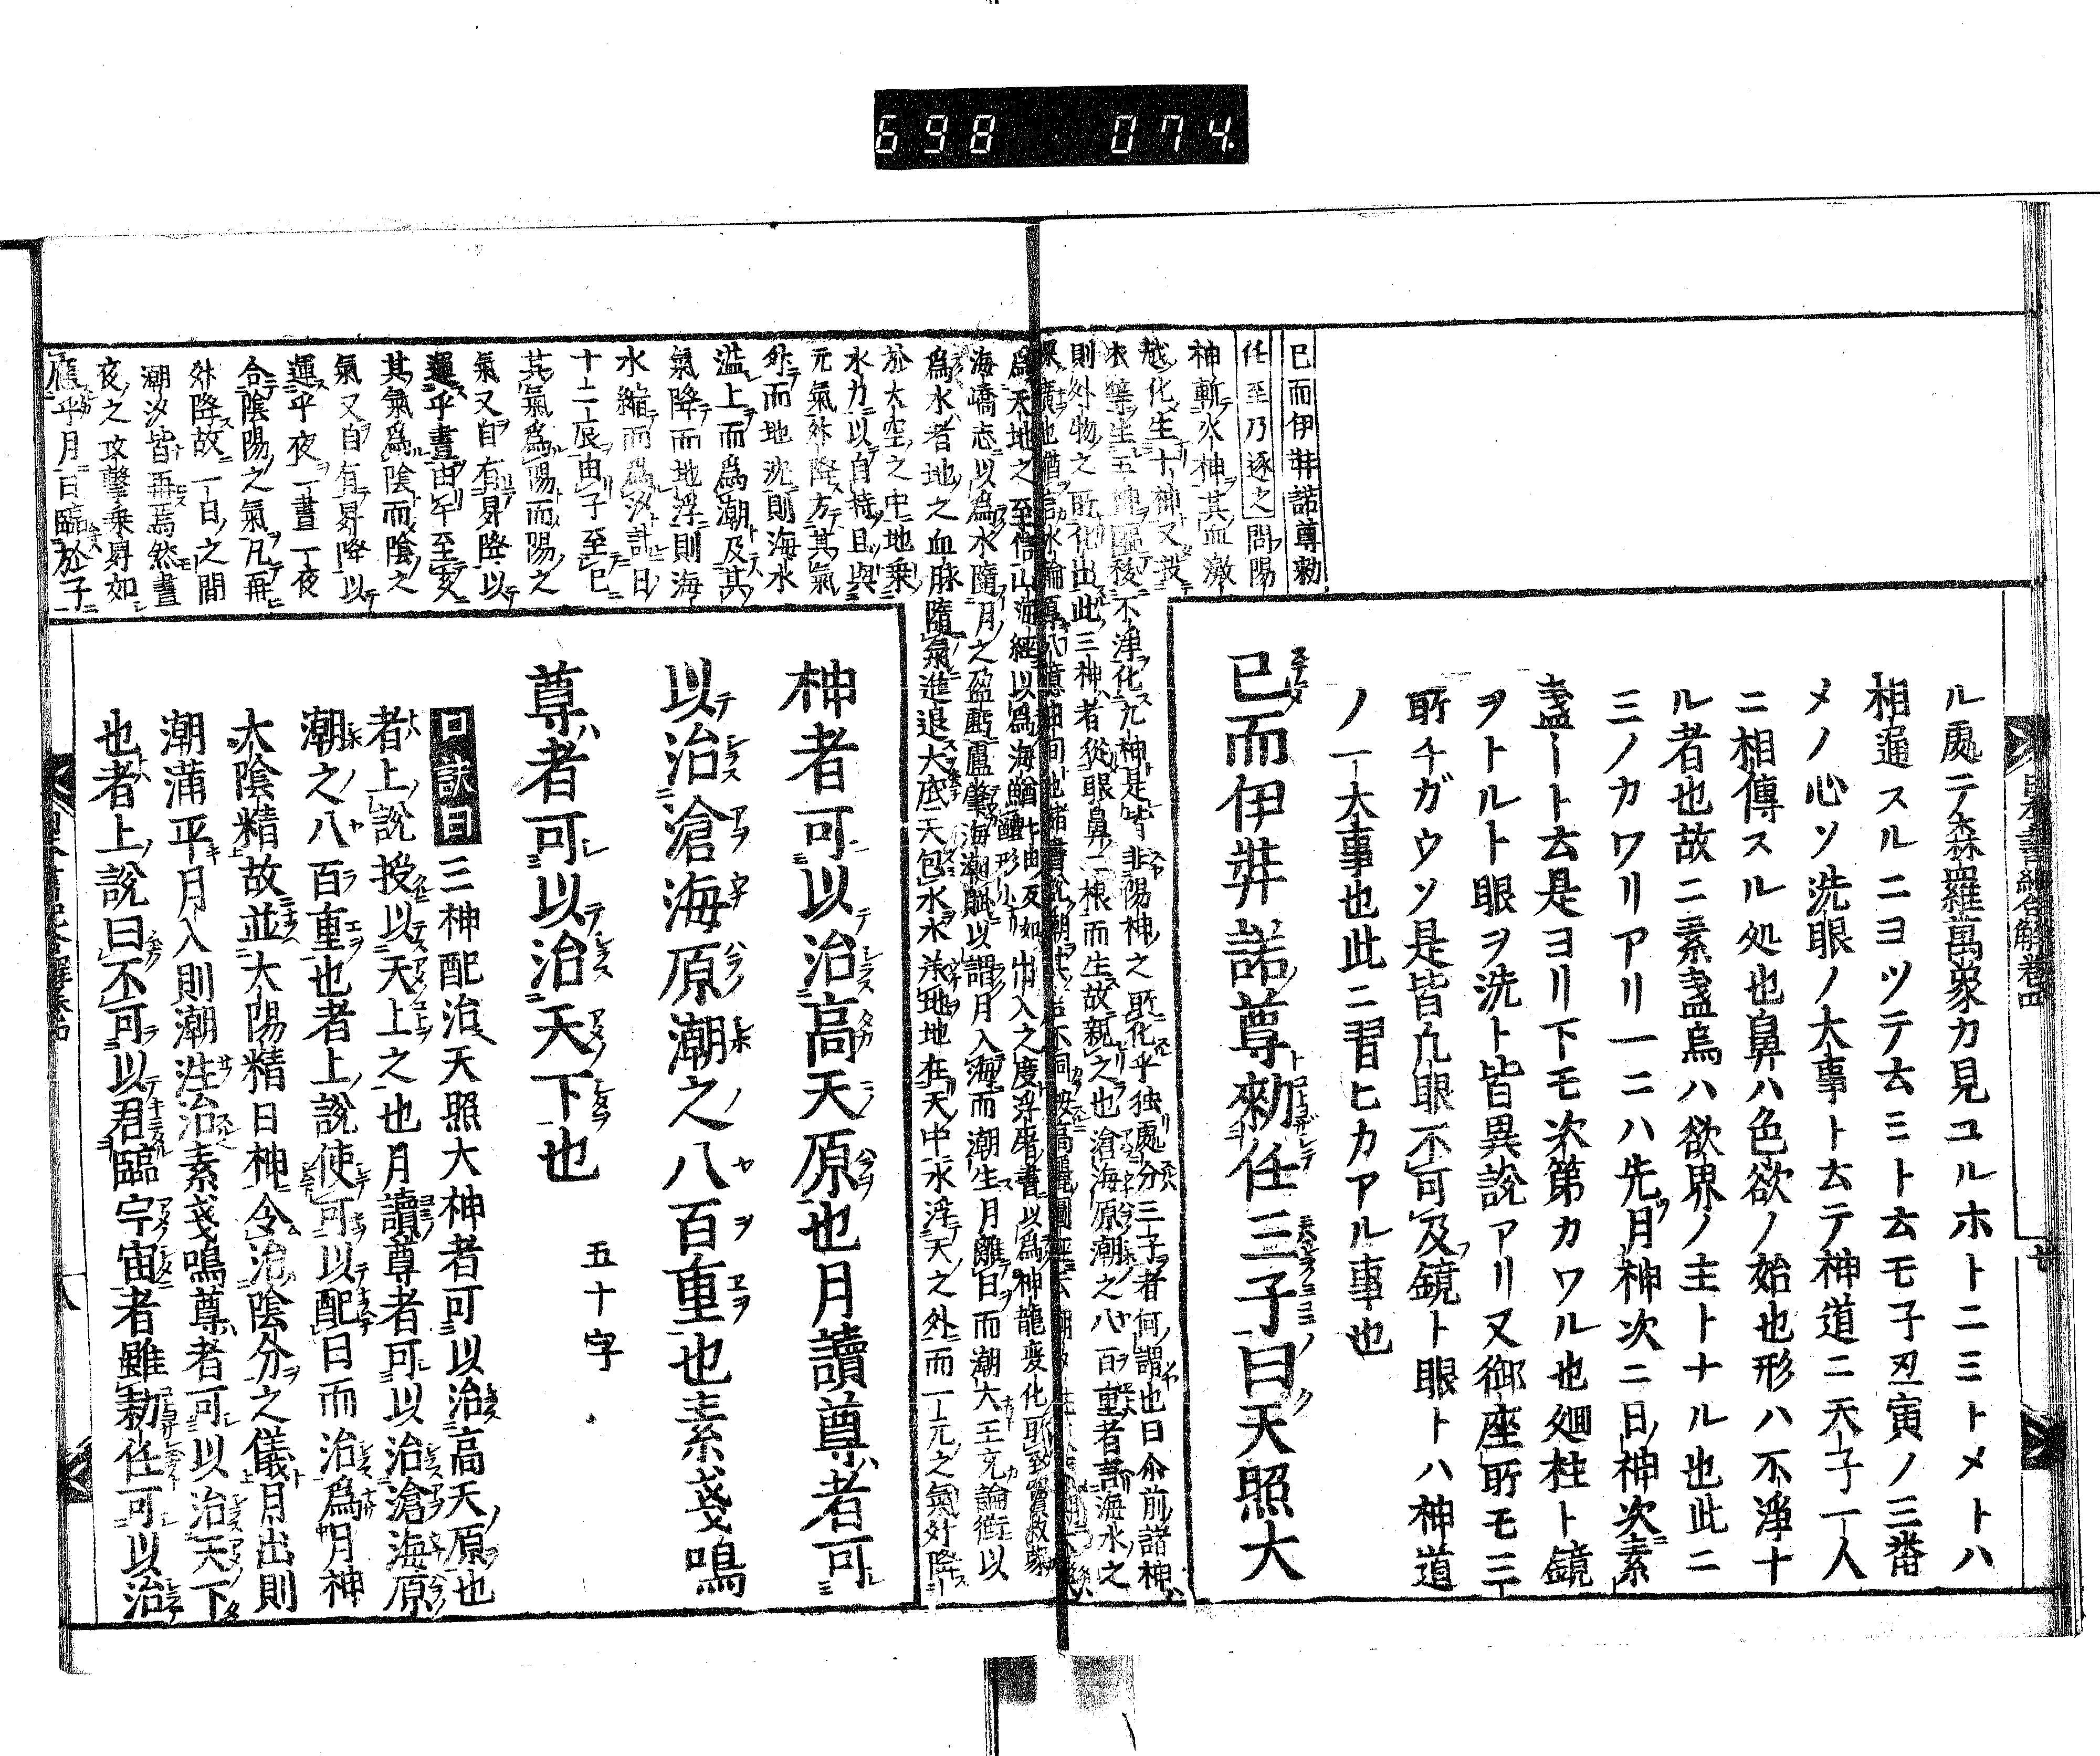 698 074.
ル處テ森羅萬象カ見ユルホトニミトメトハ
相遍スルニヨツテ云ミト云モ子丑寅ノ三番
メノ心ソ洗眼ノ大事ト云テ神道ニ天子一人
ニ相傳スル処也鼻ハ色欲ノ始也形ハ不淨ナ
ル者也故ニ素盞烏ハ欲界ノ主トナル也此ニ
三ノカワリアリ一ニハ先月神次ニ日神次素
盞ート云是ヨリ下モ次第カワル也廻柱ト鏡
ヲトルト眼ヲ洗ト皆異説アリ又御座所モ三
所チガウソ是皆凡眼不可及鏡ト眼トハ神道
ノ一大事也此ニ習ヒカアル事也
已而伊弉諾尊勅任三子曰天照大
已而伊弉諾尊勅
任至乃逐之問陽
神斬火神其血激
越化生十神又投
衣等生五神臨祓不淨化九神是皆非陽神之所化乎独處分三子者何謂也曰余前諸神
則外物之所化出此三神者從眼鼻二根而生故親之也滄海原潮之八百重者諸海水之
爲天地之至信山海經以爲海鰌出入之度浮屠書以爲神龍變化
海嶠志以爲水隨月之盈虧盧肇海潮賦以謂月入海而潮生月離日而潮大王充論衡以
爲水者地之血脉隨氣進退大底天包水水承地地在天中水浮天之外而一元之氣外降
於太空之中地乗
水力以自持且與
元氣外降方其氣
外而地沈則海水
溢上而爲潮及其
氣降而地浮則海
水縮而爲汐計日
十二辰由子至巳
其氣爲陽而陽之
氣又自有昇降以
運乎晝由午至亥
其氣爲陰而陰之
氣又自有昇降以
運乎夜一晝一夜
合陰陽之氣凡再
外降故一日之間
潮汐皆再焉然晝
夜之攻擊乗舁如
應乎月日臨於子
神者可以治高天原也月讀尊者可
以治滄海原潮之八百重也素戔鳴
尊者可以治天下也 五十字
口訣曰三神配治天照大神者可以治高天原也
者上説授以天上之也月讀尊者可以治滄海原
潮之八百重也者上説使可以配日而治爲月神
太陰精故並大陽精日神令治陰分之儀月出則
潮滿平月入則潮洼治素戔鳴尊者可以治天下
也者上説曰不可以君臨宇宙者雖勅任可以治